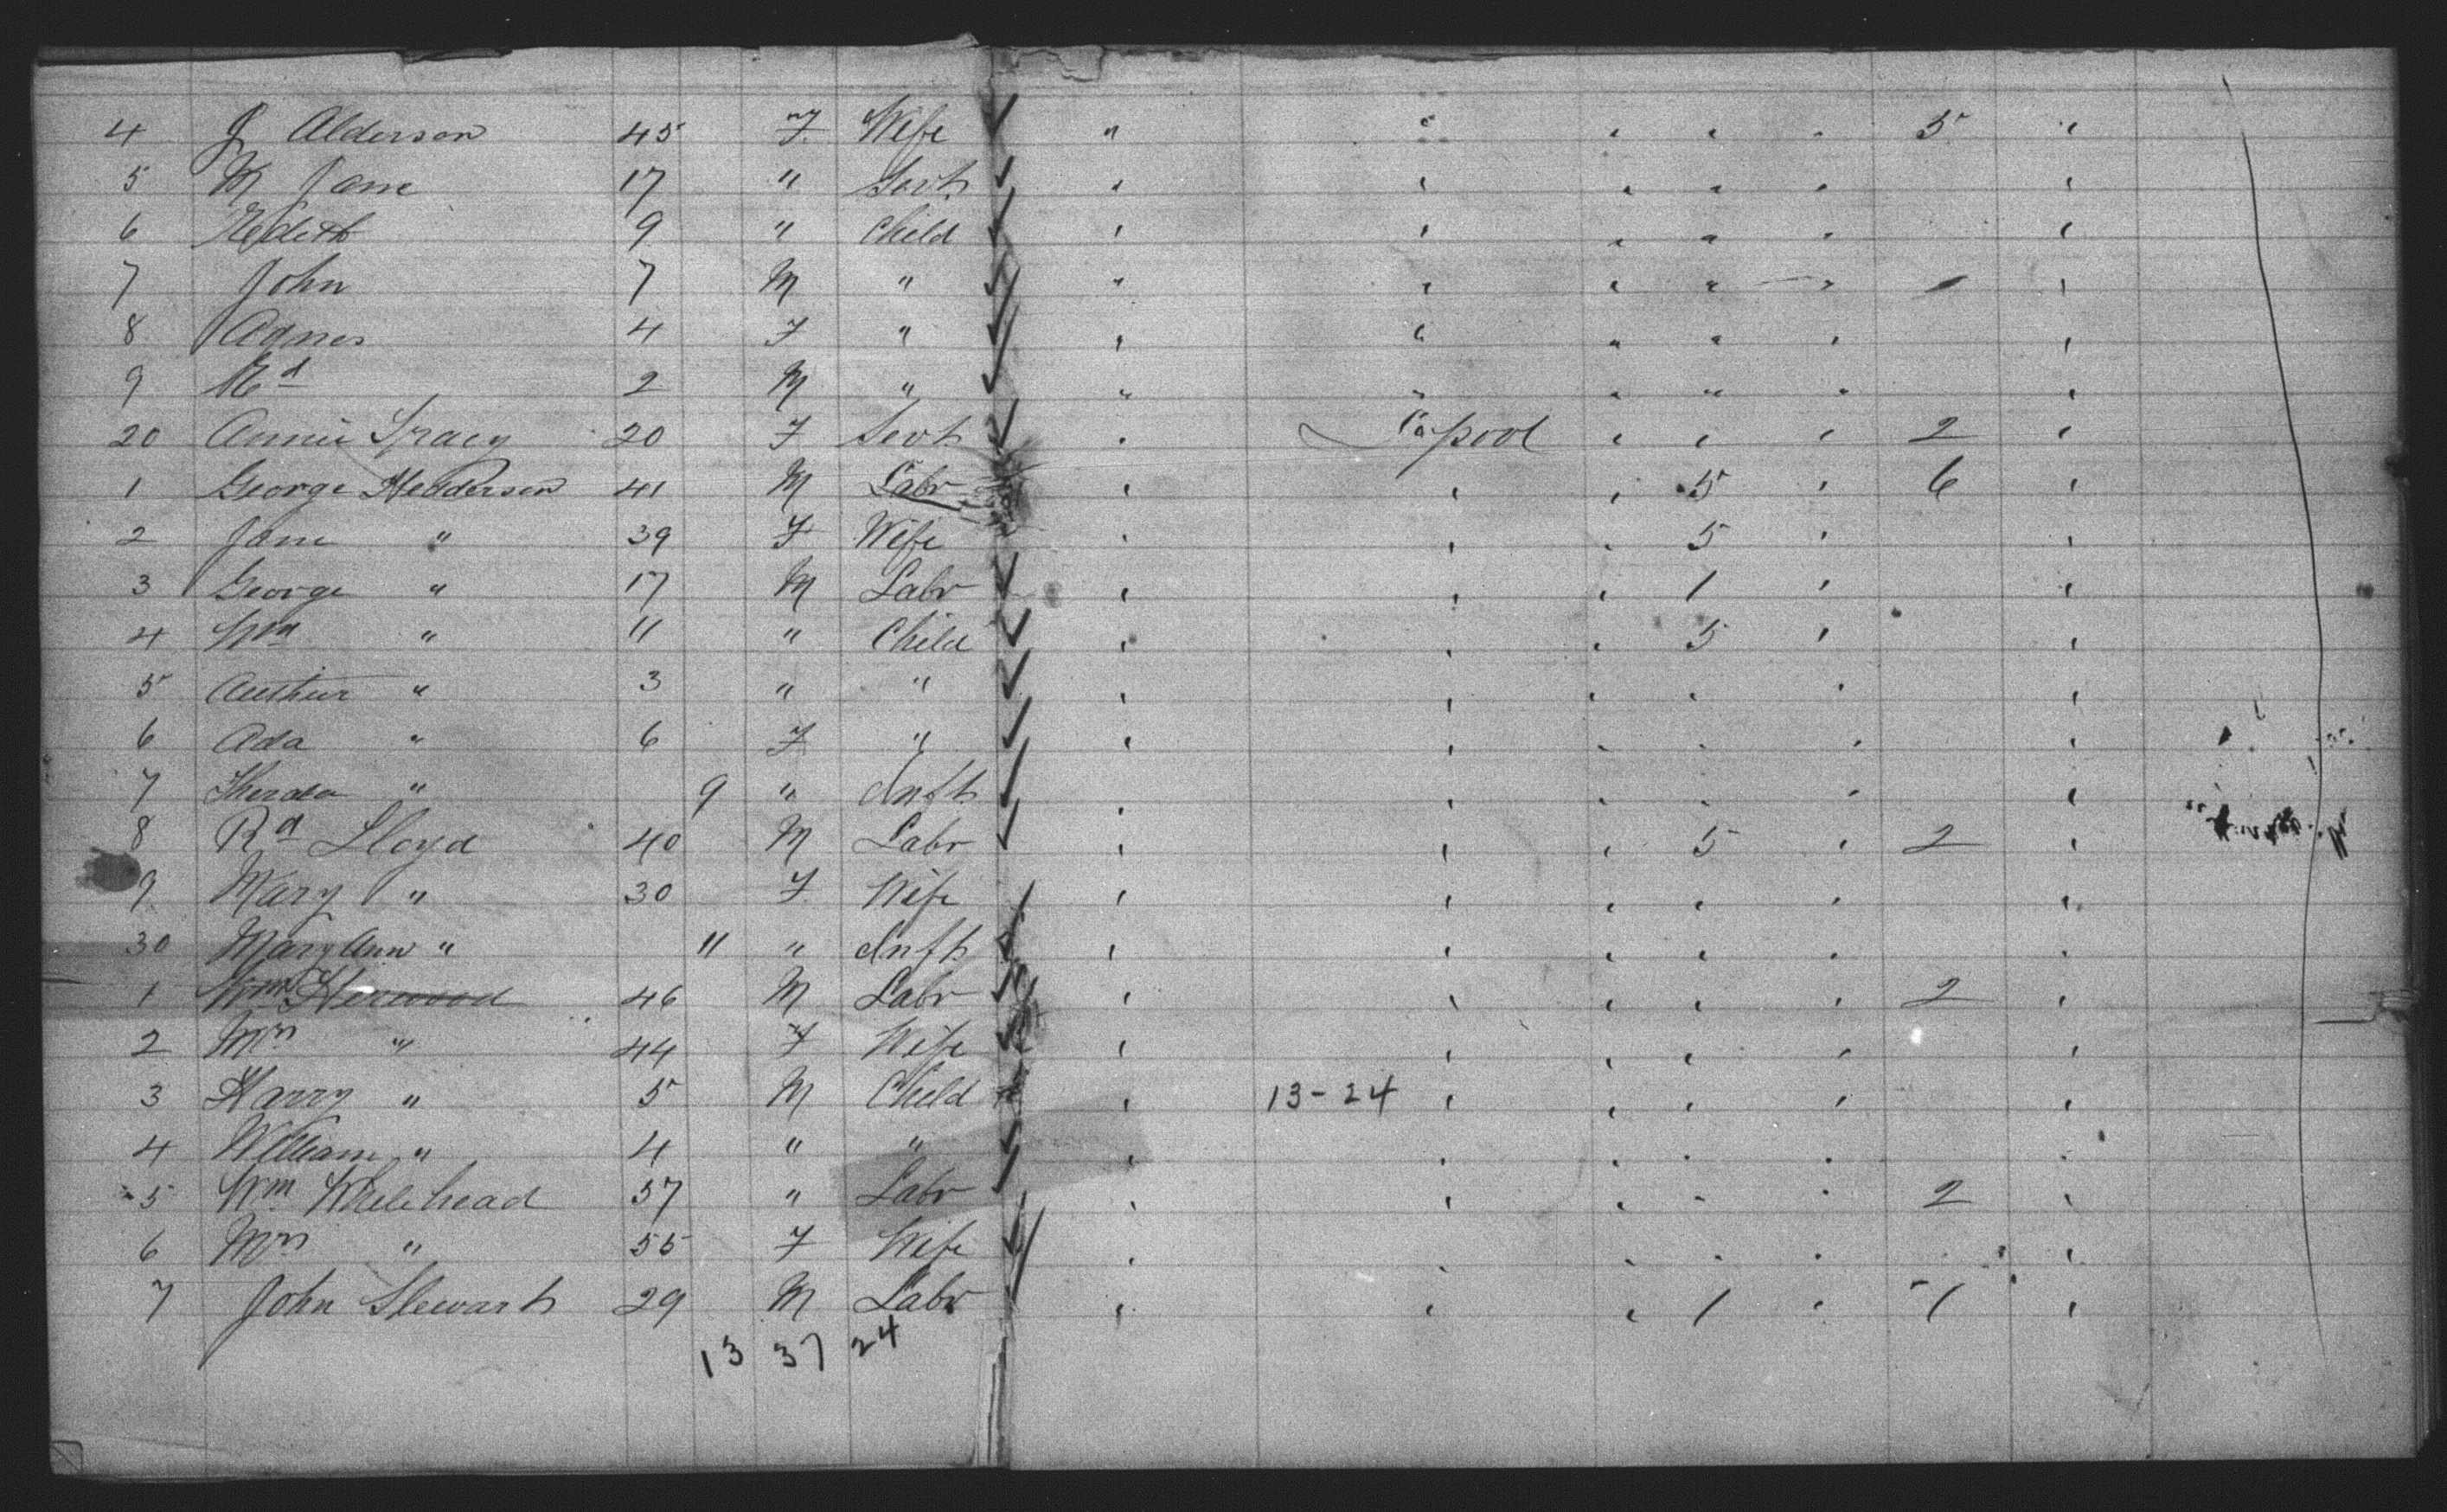 4 J Alderson 45 F Wife " " " " " 5 "
5 M Jane 17 " Servt " " " " " "
6 Edith 9 " Child " " " " " "
7 John 7 M " " " " " " "
8 Agnes 4 F " " " " " " "
9 2 M " " " " " " "
20 Annie Tracy 20 F Servt " L'pool " " " 2 "
1 George Hedderson 41 M Labr " " " 5 " 6 "
2 Jane " 39 F Wife " " " 5 " "
3 George " 17 M Labr " " " 1 " "
4 Wm " 11 " Child " " " 5 " "
5 Authur " 3 " " " " " " " "
6 Ada " 6 F " " " " " " "
7 " 9 " Inft " " " " " "
8 Rd Lloyd 40 M Labr " " " 5 " 2 "
9 Mary " 30 F Wife " " " " " "
30 Mary Ann " 11 " Inft " " " " " "
1 Wm 46 M Labr " " " " " 2 "
2 Mrs " 44 F Wife " " " " " "
3 Harry " 5 M Child " 13-24 " " " " "
4 William " 4 " " " " " " " "
5 Wm Whitehead 57 " Labr " " " " " 2 "
6 Mrs " 55 F Wife " " " " " "
7 John Stewart 29 M Labr " " " 1 " 1 "
13 37 24